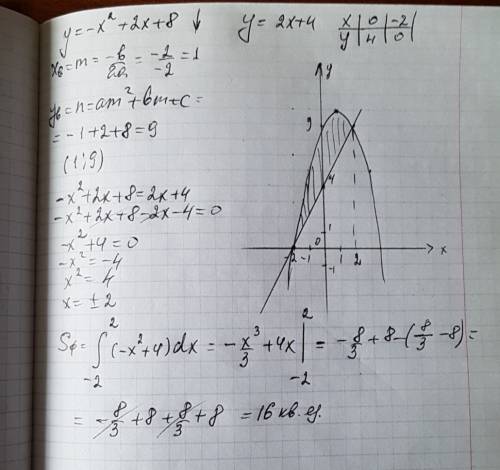 y = -x² + 2x + 8 ↓
y = 2x+4
x | 0 | -2
y | 4 | 0
x₈ = m = -b/2a = -2/-2 = 1
y₈ = n = am² + bm + c =
= -1 + 2 + 8 = 9
(1; 9)
-x² + 2x + 8 = 2x + 4
-x² + 2x + 8 - 2x - 4 = 0
-x² + 4 = 0
-x² = -4
x² = 4
x = ± 2
y
9
4
1
-2 -1 0 2 x
-1
Sф = ∫₋₂² (-x² + 4) dx = -x³/3 + 4x |₋₂² = -8/3 + 8 - (8/3 - 8) =
= -8/3 + 8 + 8/3 + 8 = 16 кв. ед.